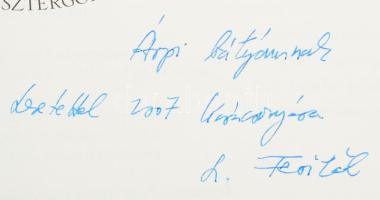 SZTERGO
Árpi bátyámnak
szeretettel 2007 Karácsonyára
L. Feriték